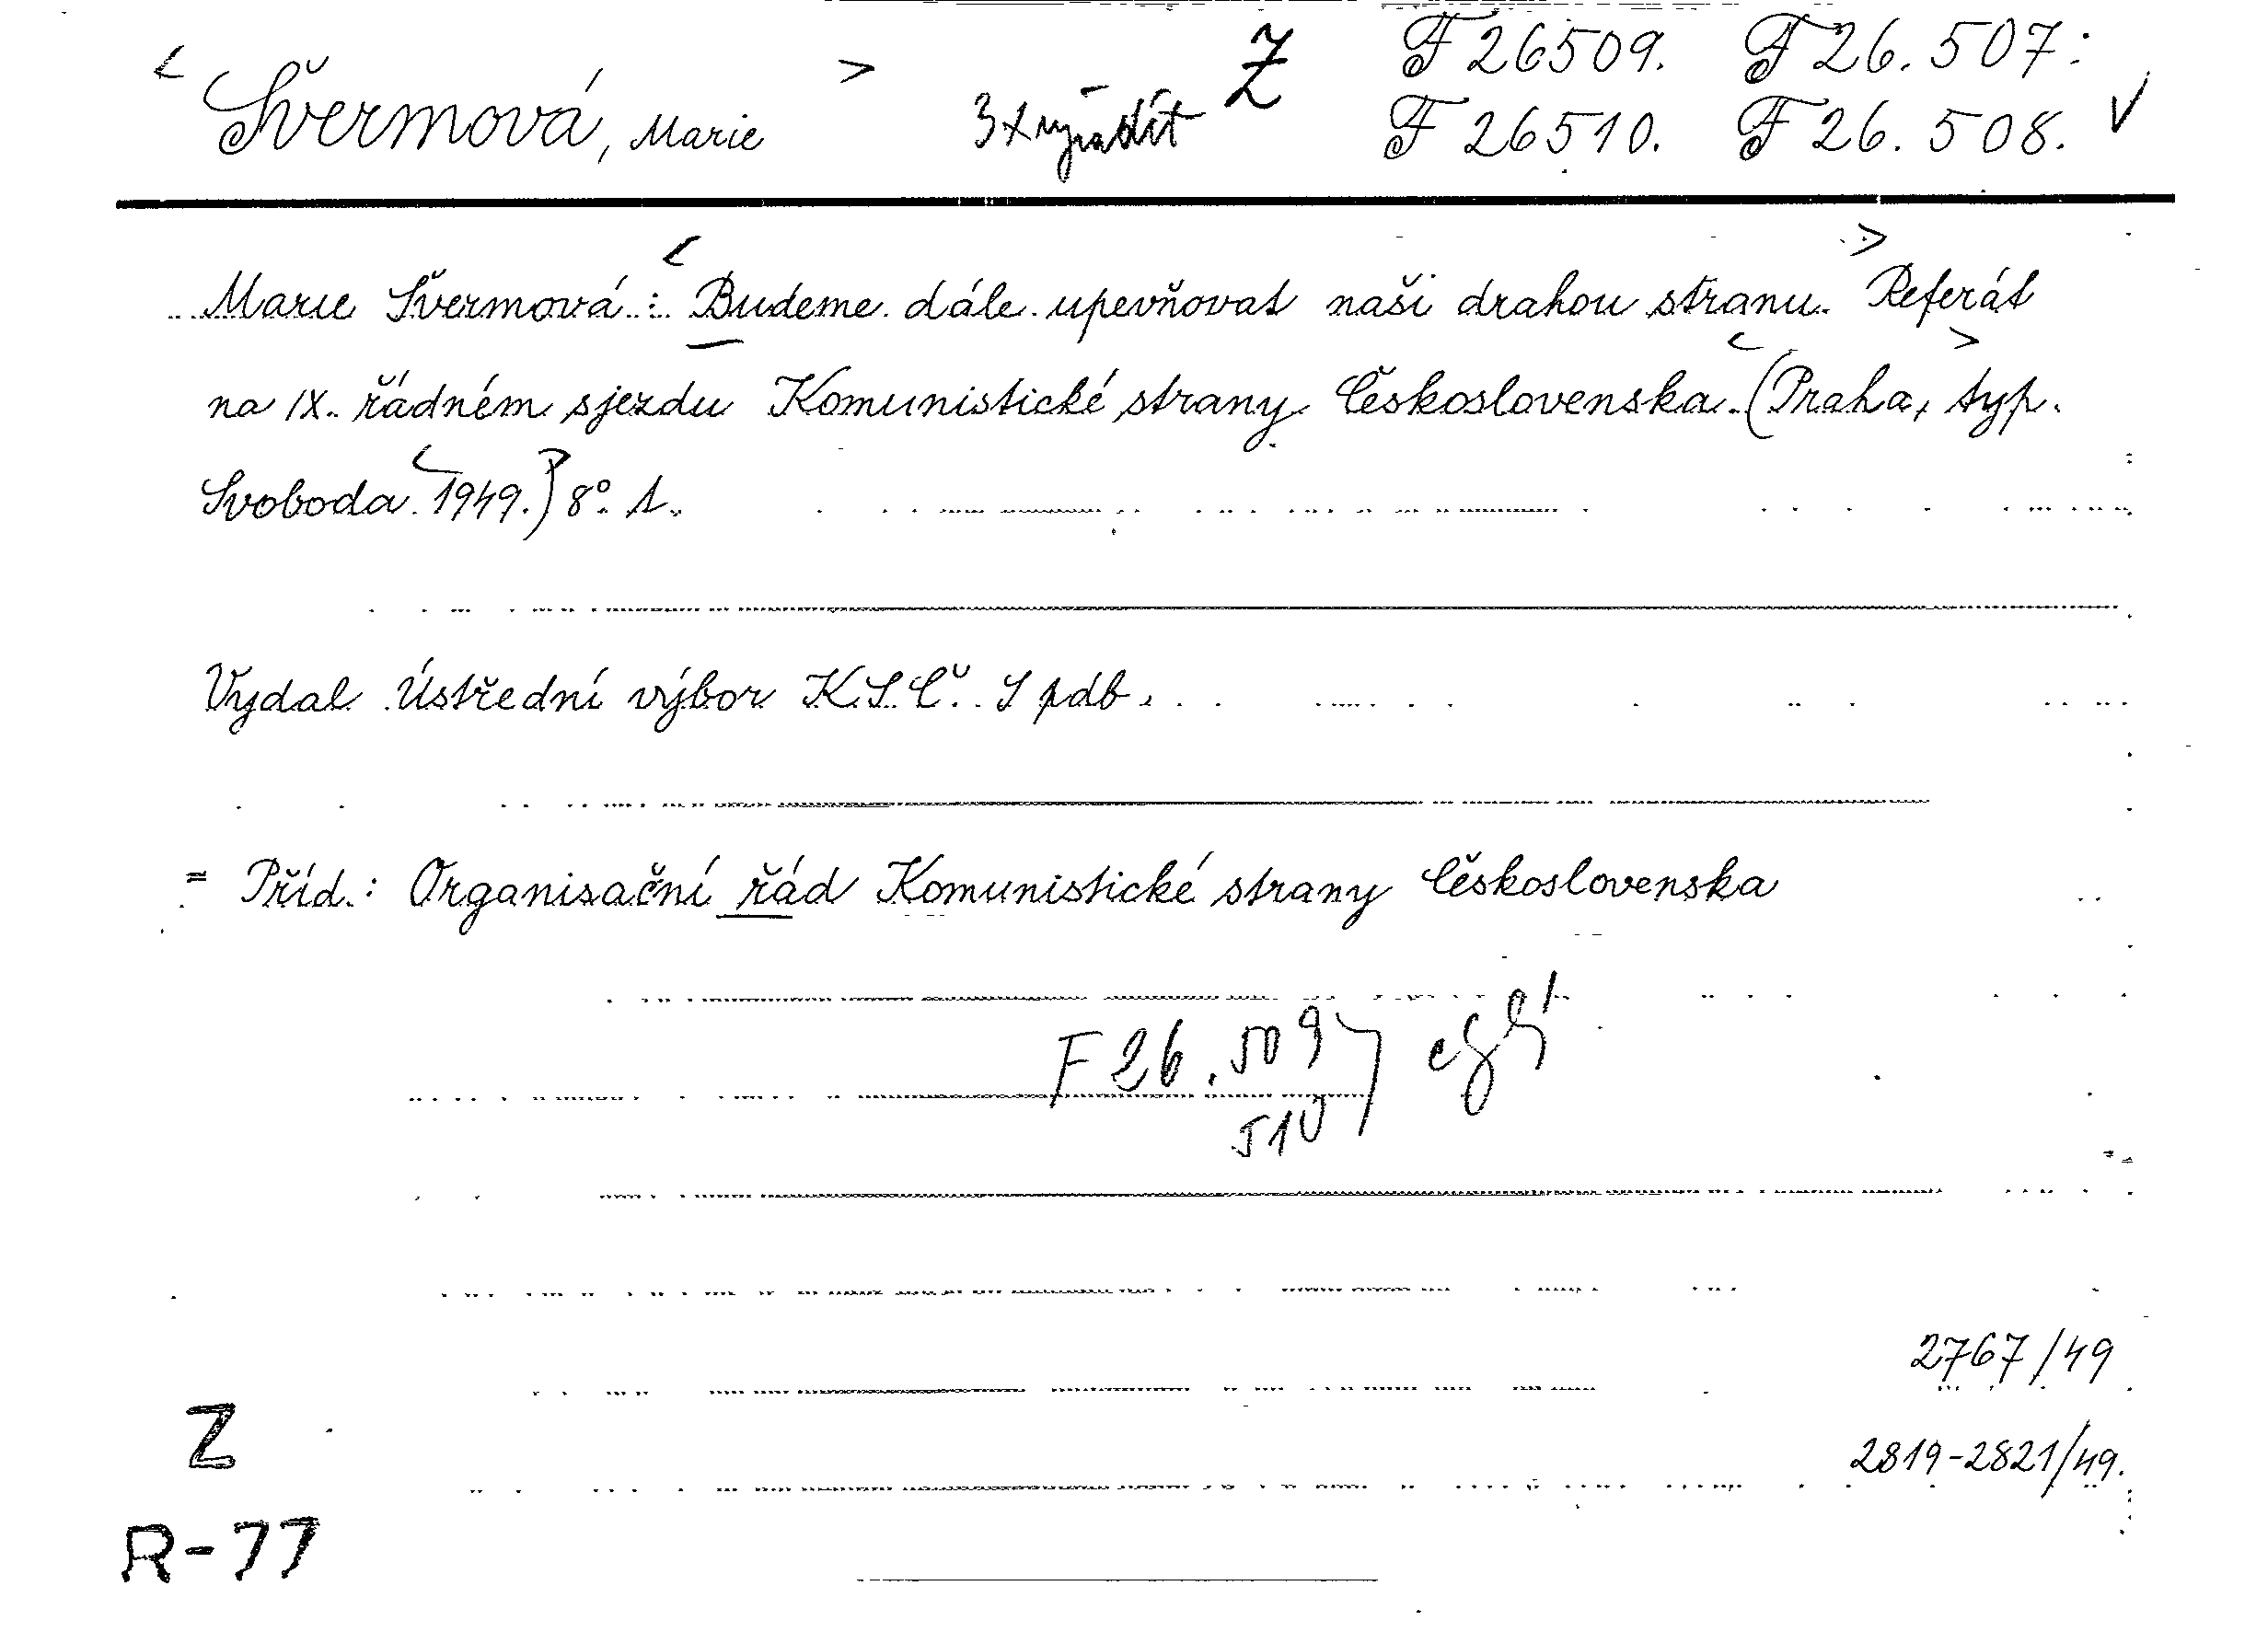 < Švermová, Marie > 3x vyřadit Z F 26509. F 26.507:
F 26510. F 26.508. V
Marie Švermová: < Budeme dále upevňovat naši drahou stranu. > Referát
na IX. řádném sjezdu Komunistické strany Československa. (< Praha, > typ.
Svoboda < 1949. >) 8°. 1.
Vydal Ústřední výbor K.S.Č. S pdb.
= Příd.: Organisační řád Komunistické strany Československa
F 26.509
510
2767/49
Z
2819-2821/49.
R-77